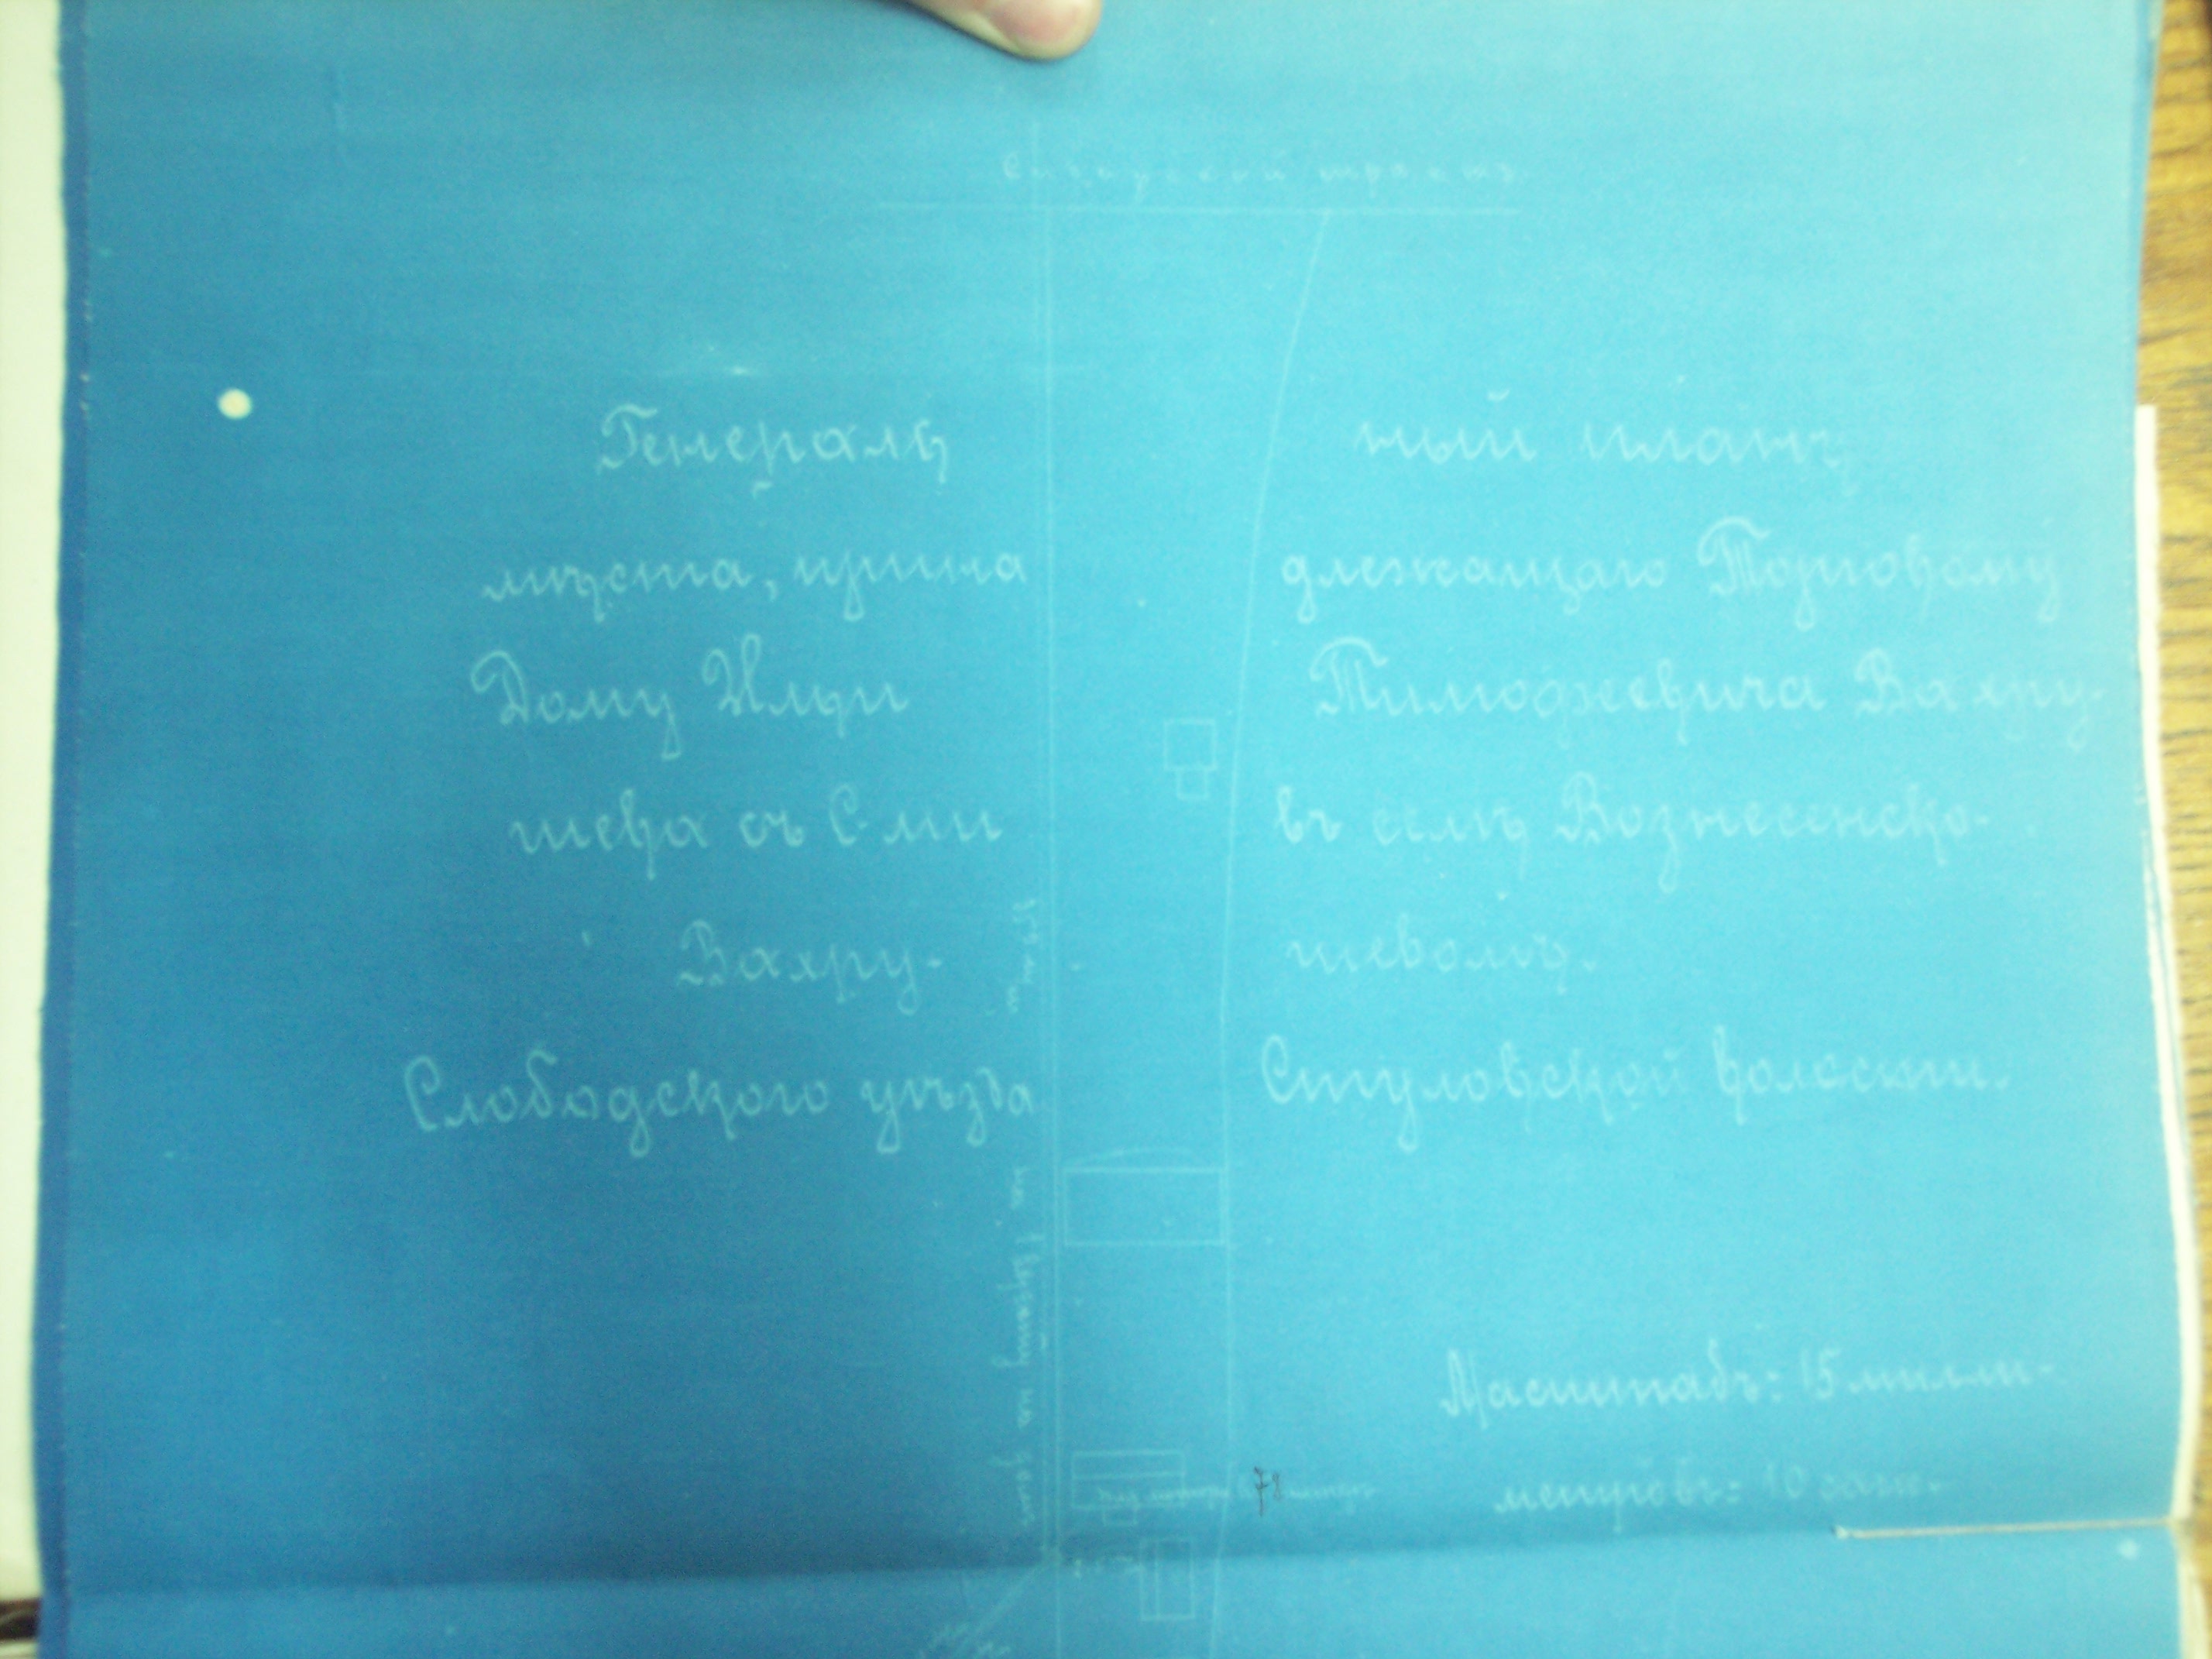 трактъ
Генераль ный планъ
мѣста, прина длежащаго Торговому
Дому Ильи Тимофеевича Вахру-
шева съ С-ми въ селѣ Вознесенско-
Вахру- шевомъ.
Слободского уѣзда Стуловской волости.
Масштабъ: 15 милли-
метровъ = 10 саж.